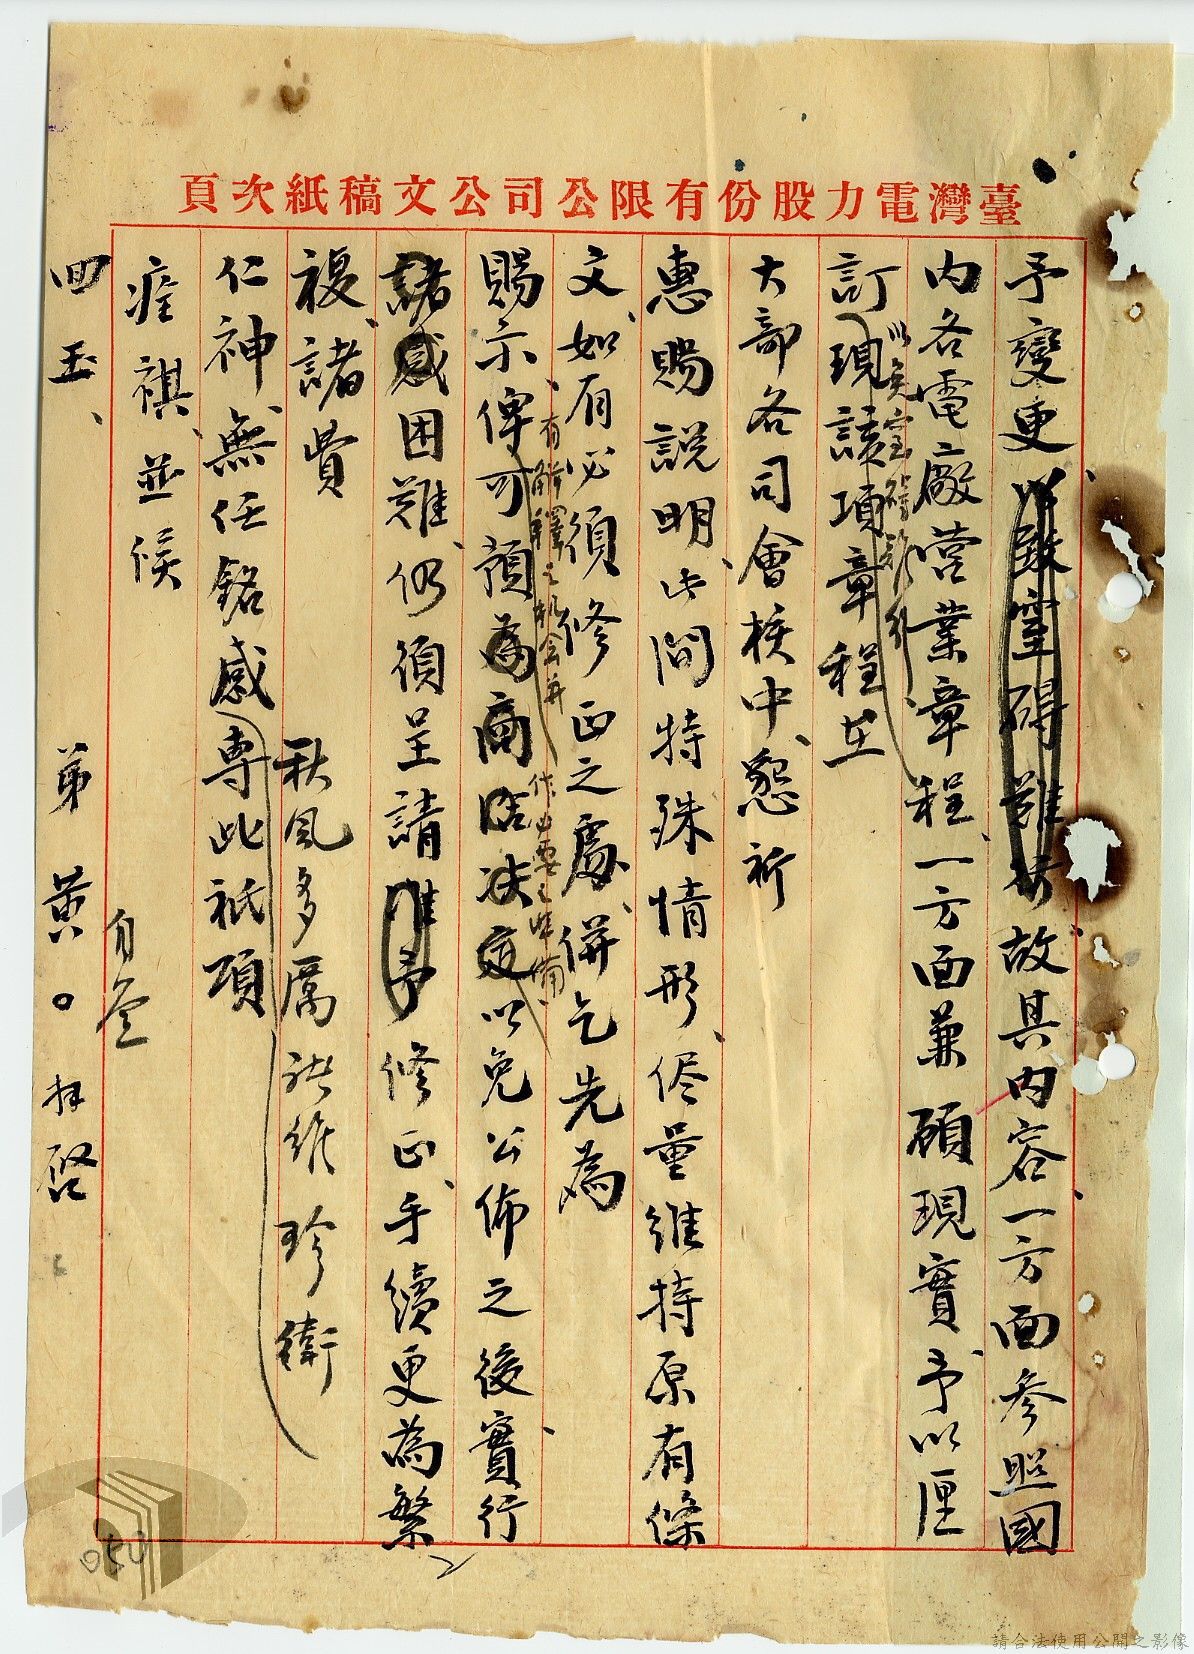 臺灣電力股份有限公司公文稿紙次頁
予變更、以致窒礙難行、故其內容、一方面參照國
內各電廠營業章程、一方面兼顧現實、予以厘
以免窒礙難行、
訂、現該項章程在
大部各司會核中、懇祈
惠賜說明此間特殊情形、儘量維持原有條
文、如有必須修正之處、併乞先為
賜示、俾可預為商洽決定、以免公佈之後、實行
有解釋之機會并
作必要之準備
諸感困難、仍須呈請准予修正、手續更為繁
複、諸費
秋風多厲 諸維珍衛
仁神、無任銘感、專此祗頌
痊祺、並候
回玉、
弟黃○拜啓
月 壹
054
請合法使用公開之影像